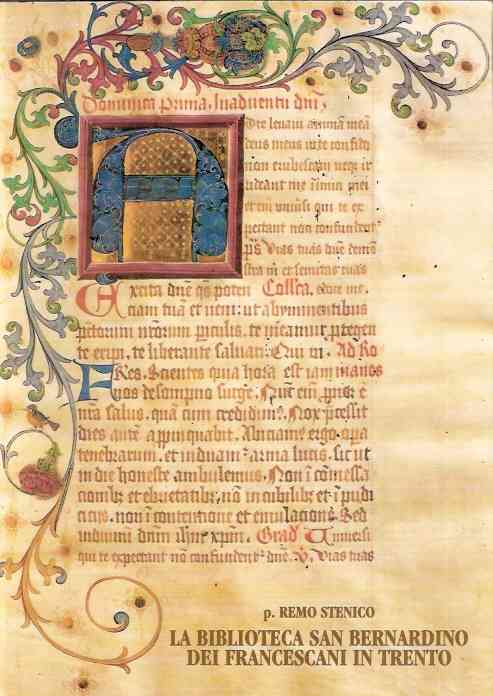 Dominica prima. In adventu dn̄i,
Ad te levavi animā meā
deus meus in te confido
non erubescam neqꝫ ir
rideant me inimici mei
et em̄ univ̄si qui te ex
pectant non confundent᷑
p̄s Vias tuas dn̄e demō
stra m̄ et semitas tuas
Excita dn̄e qs̄ potent Collecta.
ciam tuā et veni: ut ab ymminentibus
pctorum nr̄orum p̄iculis. te m̄eamur p̄tegen
te eripi. te liberante salvari: Qui vi. Ad Ro
Fr̄es. Scientes quia hora est iam manos
nos de sompno surge. Nunc em̄ ppior ē
nr̄a salus. quā cum credidim᷒. Nox p̄cessit
dies autē appinquabit. Abiciam᷒ ergo opa
tenebrarum. et induam᷒ arma lucis. sic ut
in die honeste ambulemus. Non ī comessa
cionibꝫ et ebrietatibꝫ. nō in cubilibꝫ et ī pudi
citijs. non ī contentione et emulacione. Sed
induimi dn̄m ihm̄ xpm̄. Grad̄ Universi
qui te expectant nō confundent᷑ dn̄e. V̄. Vias tuas
p. REMO STENICO
LA BIBLIOTECA SAN BERNARDINO
DEI FRANCESCANI IN TRENTO